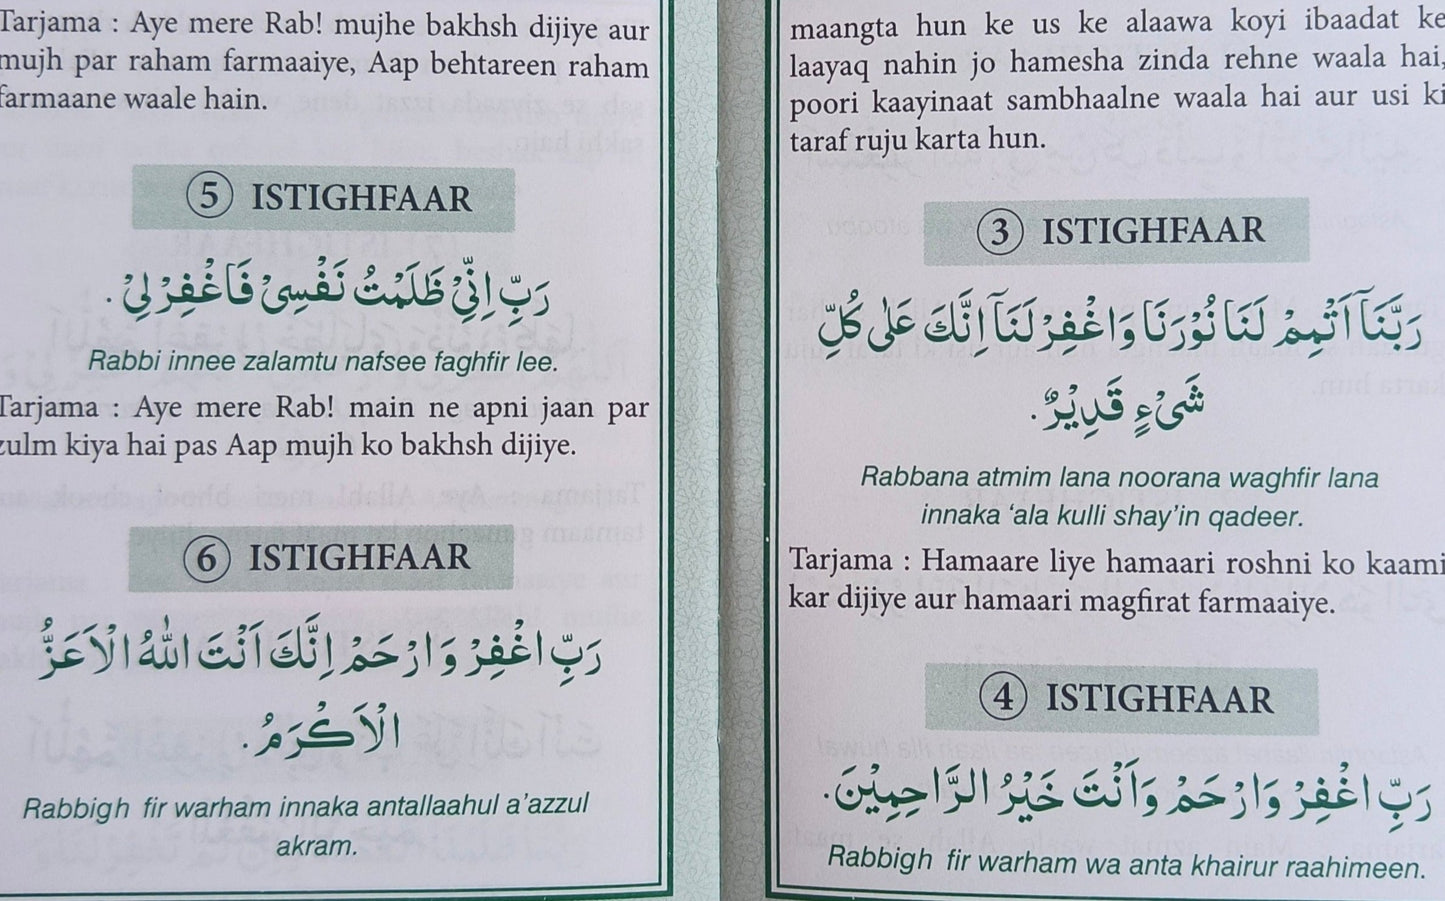 maangta hun ke us ke alaawa koyi ibaadat ke
laayaq nahin jo hamesha zinda rehne waala hai,
poori kaayinaat sambhaalne waala hai aur usi ki
taraf ruju karta hun.
3 ISTIGHFAAR
رَبَّنَآ اَتْمِمْ لَنَا نُوْرَنَا وَاغْفِرْ لَنَآ اِنَّكَ عَلٰى كُلِّ
شَىْءٍ قَدِيْرٌ.
Rabbana atmim lana noorana waghfir lana
innaka ‘ala kulli shay’in qadeer.
Tarjama : Hamaare liye hamaari roshni ko kaami
kar dijiye aur hamaari magfirat farmaaiye.
4 ISTIGHFAAR
رَبِّ اغْفِرْ وَارْحَمْ وَاَنْتَ خَيْرُ الرَّاحِمِيْنَ.
Rabbigh fir warham wa anta khairur raahimeen.
Tarjama : Aye mere Rab! mujhe bakhsh dijiye aur
mujh par raham farmaaiye, Aap behtareen raham
farmaane waale hain.
5 ISTIGHFAAR
رَبِّ اِنِّىْ ظَلَمْتُ نَفْسِىْ فَاغْفِرْ لِىْ.
Rabbi innee zalamtu nafsee faghfir lee.
Tarjama : Aye mere Rab! main ne apni jaan par
zulm kiya hai pas Aap mujh ko bakhsh dijiye.
6 ISTIGHFAAR
رَبِّ اغْفِرْ وَارْحَمْ اِنَّكَ اَنْتَ اللّٰهُ الْاَعَزُّ
الْاَكْرَمُ.
Rabbigh fir warham innaka antallaahul a’azzul
akram.